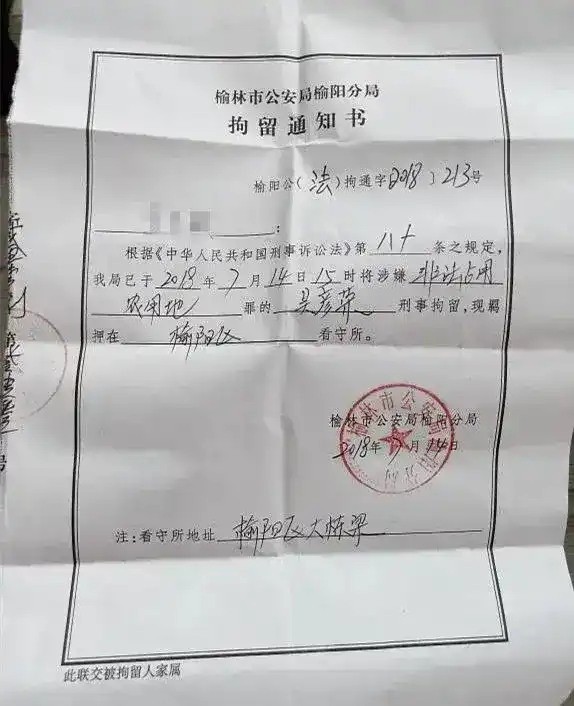 榆林市公安局榆阳分局
拘留通知书
榆阳公(法)拘通字2018〕213号
:
根据《中华人民共和国刑事诉讼法》第八十条之规定,
我局已于2018年7月14日15时将涉嫌非法占用
农用地罪的吴彦荣刑事拘留,现羁
押在榆阳区看守所。
榆林市公安局榆阳分局
2018年7月14日
注:看守所地址榆阳区大栋梁
此联交被拘留人家属